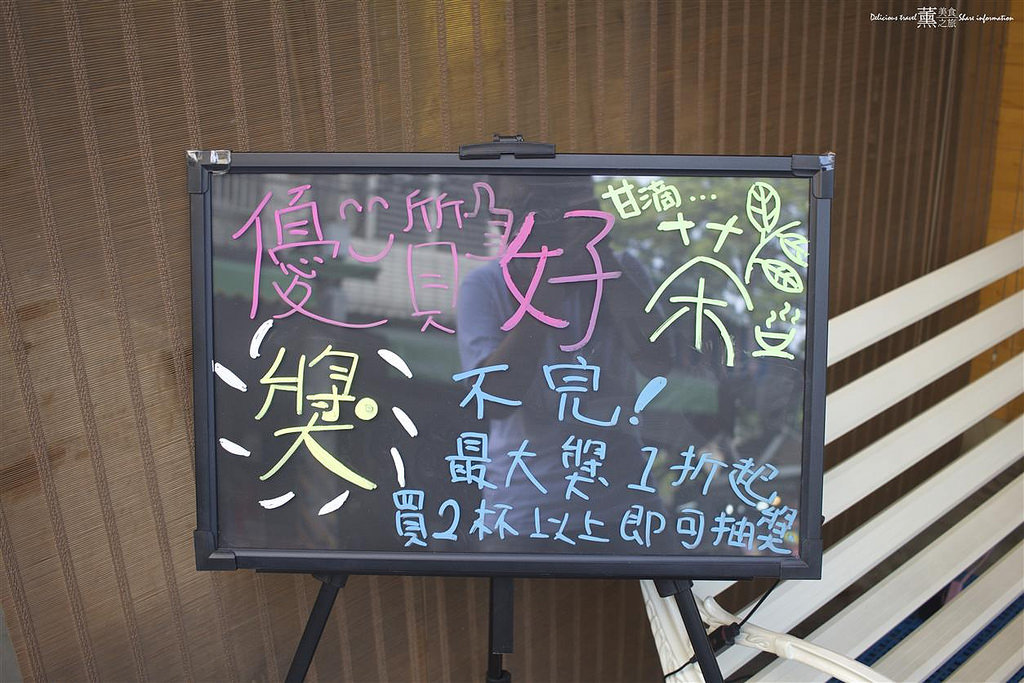 Delicious travel 薰 美食之旅 Share information
甘滴...
優質好茶
獎不完!
最大獎1折起
買2杯以上即可抽獎